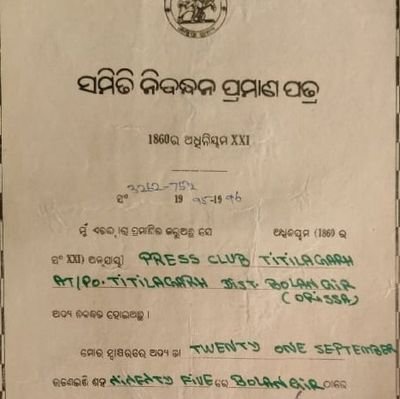 ସମିତି ନିବନ୍ଧନ ପ୍ରମାଣ ପତ୍ର
1860ର ଅଧିନିୟମ XXI
ସଂ 19 95-19 96
ମୁଁ ଏତଦ୍ଦ୍ଵାରା ପ୍ରମାଣିତ କରୁଅଛି ଯେ ଅଧିନିୟମ (1860 ର
ସଂ XXI) ଅନୁଯାୟୀ PRESS CLUB TITILAGARH
AT/PO. TITILAGARH DIST. BOLANGIR
(ORISSA)
ଅଦ୍ୟ ନିବନ୍ଧିତ ହୋଇଅଛି ।
ମୋର ସ୍ୱାକ୍ଷରରେ ଅଦ୍ୟ ତା TWENTY ONE SEPTEMBER
ଉଣେଇଶି ଶହ NINENTY FIVE ରେ BOLANGIR ଠାରେ